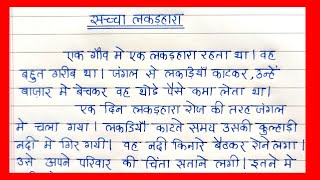 सच्चा लकड़हारा
एक गाँव मे एक लकड़हारा रहता था। वह
बहुत गरीब था। जंगल से लकडियाँ काटकर, उन्हें
बाज़ार मे बेचकर वह थोडे पैसे कमा लेता था।
एक दिन लकड़हारा रोज की तरह जंगल
मे चला गया। लकडियाँ काटते समय उसकी कुल्हाड़ी
नदी मे गिर गयी। वह नदी किनारे बैठकर रोने लगा।
उसे अपने परिवार की चिंता सताने लगी। इतने मे